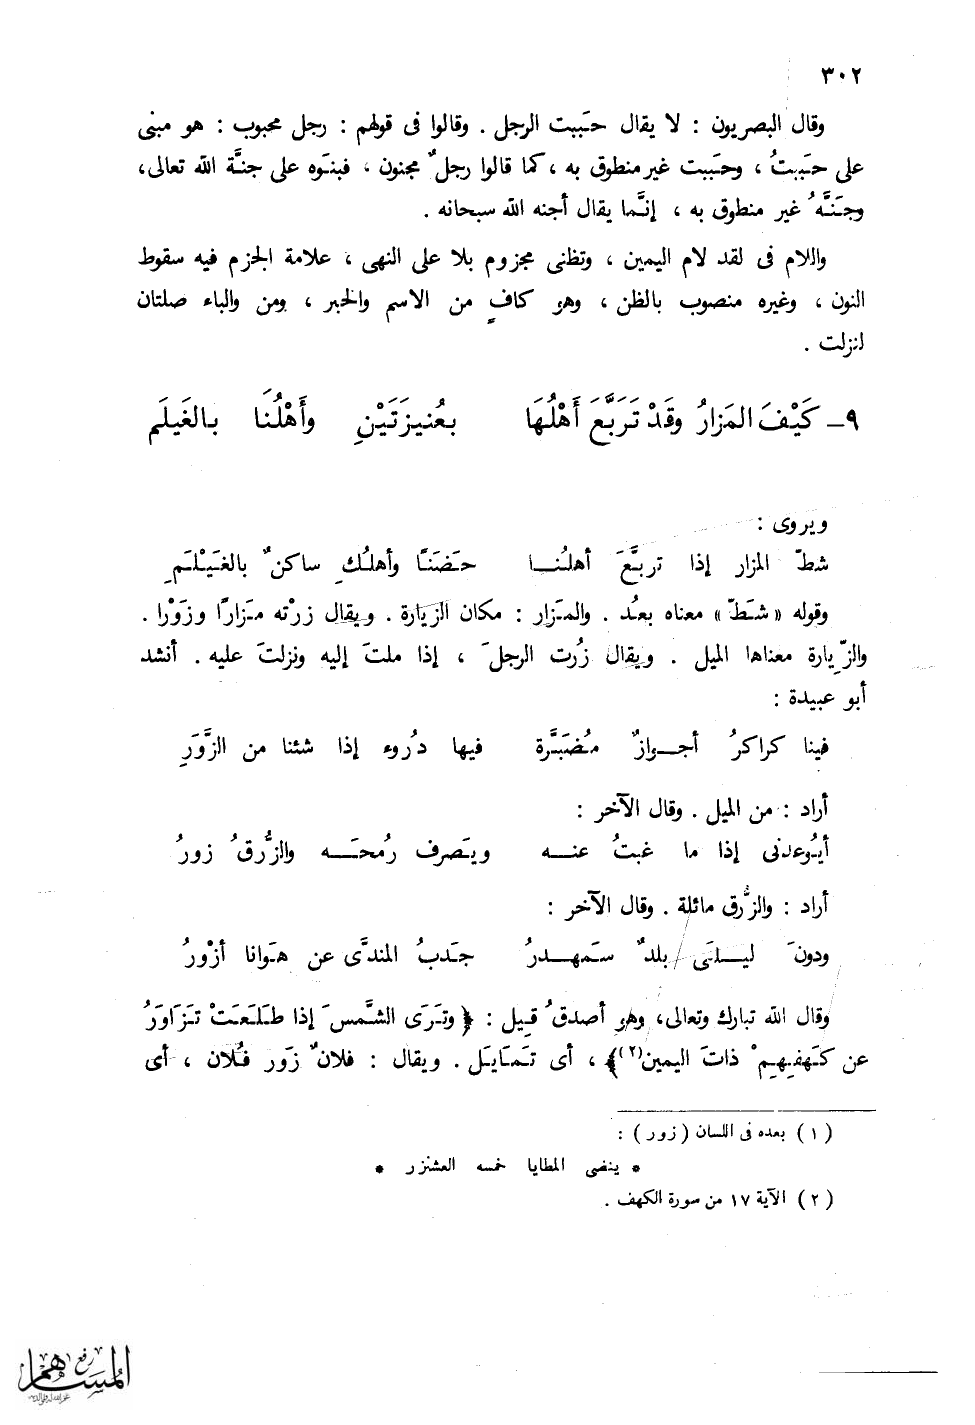 ٣٠٢
وقال البصريون : لا يقال حَبَبت الرجل . وقالوا فى قولهم : رجل محبوب : هو مبنى
على حَبَبتُ ، وحَبَبت غير منطوق به ، كما قالوا رجلٌ مجنون ، فبنَوه على جنَّة الله تعالى،
وجَنَّهُ غير منطوق به ، إنَّما يقال أجنه الله سبحانه .
واللام فى لقد لام اليمين ، وتظنى مجزوم بلا على النهى ، علامة الجزم فيه سقوط
النون ، وغيره منصوب بالظن ، وهو كافٍ من الاسم والخبر ، ومن والباء صلتان
لنزلت .
٩ـ كَيْفَ المَزارُ وقَدْ تَرَبَّعَ أَهْلُهَا بعُنيزَتَيْنِ وأَهْلُنَا بالغَيلَم
ويروى :
شطّ المزار إذا تربَّعَ أهلُنا حَضَنًا وأهلُكِ ساكنٌ بالغَيْلَمِ
وقوله « شَطّ » معناه بعُد . والمَزار : مكان الزيارة . ويقال زرْته مَزارًا وزَوْرا .
والزِّيارة معناها الميل . ويقال زُرت الرجلَ ، إذا ملتَ إليه ونزلتَ عليه . أنشد
أبو عبيدة :
فينا كراكرُ أجوازٌ مُضَبَّرة فيها دُروء إذا شئنا من الزَّوَرِ
أراد : من الميل . وقال الآخر :
أيُوعدنى إذا ما غبتُ عنه ويَصرف رُمحَه والزُّرقُ زورُ
أراد : والزُّرق مائلة . وقال الآخر :
ودونَ ليلَى بلدٌ سَمهدرُ جَدبُ المندَّى عن هَوانا أزْورُ
وقال الله تبارك وتعالى، وهو أصدقُ قِيل : ﴿ وتَرَى الشَّمسَ إذا طَلَعَتْ تَزَاوَرُ
عن كَهفِهِمْ ذاتَ اليمين(٢)﴾ ، أى تَمَايَل . ويقال : فلانٌ زَور فُلان ، أى
( ١ ) بعده فى اللسان ( زور ) :
* ينضى المطايا خمسه العشنزر *
( ٢ ) الآية ١٧ من سورة الكهف .